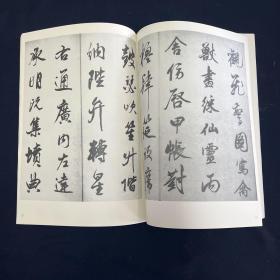 觀芸窻圖寫禽
獸畫綵仙靈丙
舍傍啓甲帳對
楹肆筵設席
鼓瑟吹笙升階
納陛弁轉星
右通廣内左達
承明既集墳典